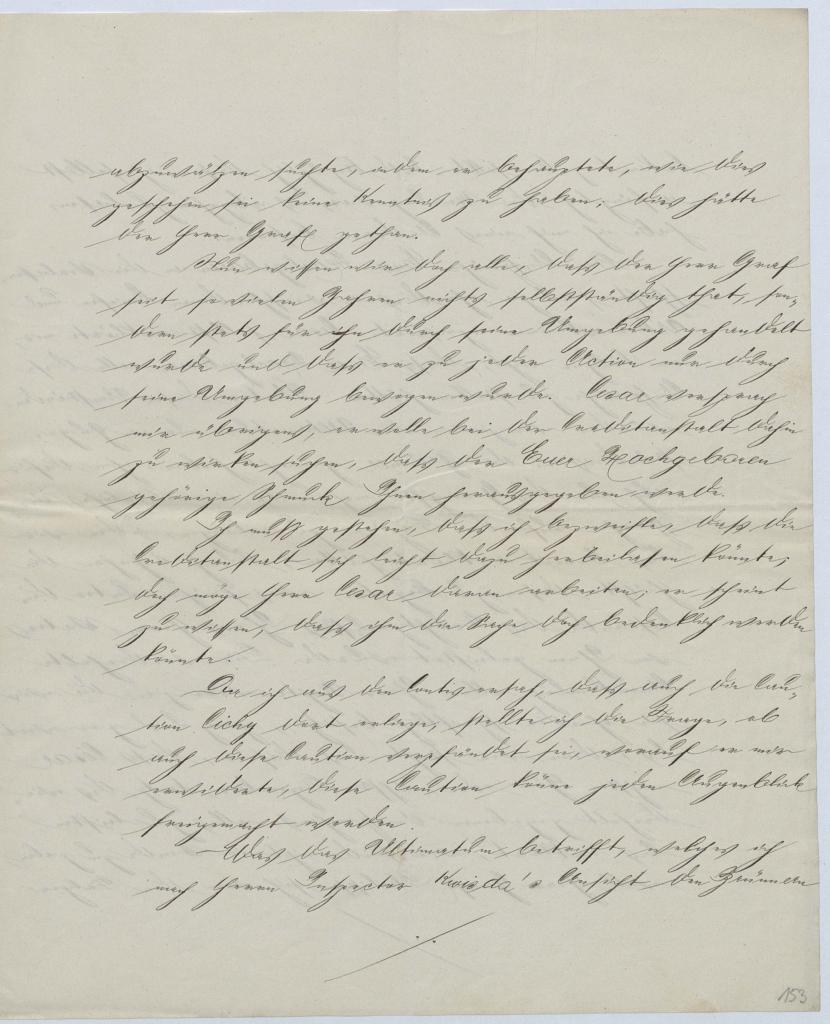 abzuwälzen suchte, indem er behauptete, wie dies
geschehen sei keine Kenntniß zu haben; dies hätte
der Herr Graf gethan.
Nun wissen wir doch alle, daß der Herr Graf
seit so vielen Jahren nichts selbstständig that, son-
dern stets für ihn durch seine Umgebung gehandelt
wurde und daß er zu jeder Action nur durch
seine Umgebung bewogen wurde. Cesar versprach
mir übrigens, er wolle bei der Creditanstalt dahin
zu wirken suchen, daß der Euer Hochgeboren
gehörige Schmuck Ihnen herausgegeben werde.
Ich muß gestehen, daß ich bezweifle, daß die
Creditanstalt sich leicht dazu herbeilassen könnte;
doch möge Herr Cesar daran arbeiten; er scheint
zu wissen, daß ihm die Sache doch bedenklich werden
könnte.
Da ich aus den Contis ersah, daß auch die Cau-
tion Cichy dort erliege, stellte ich die Frage, ob
auch diese Caution verpfändet sei, worauf er mir
erwiderte, diese Caution könne jeden Augenblick
freigemacht werden.
Was das Ultimatum betrifft, welches ich
nach Herrn Inspector Kwizda's Ansicht den Brünnern
153